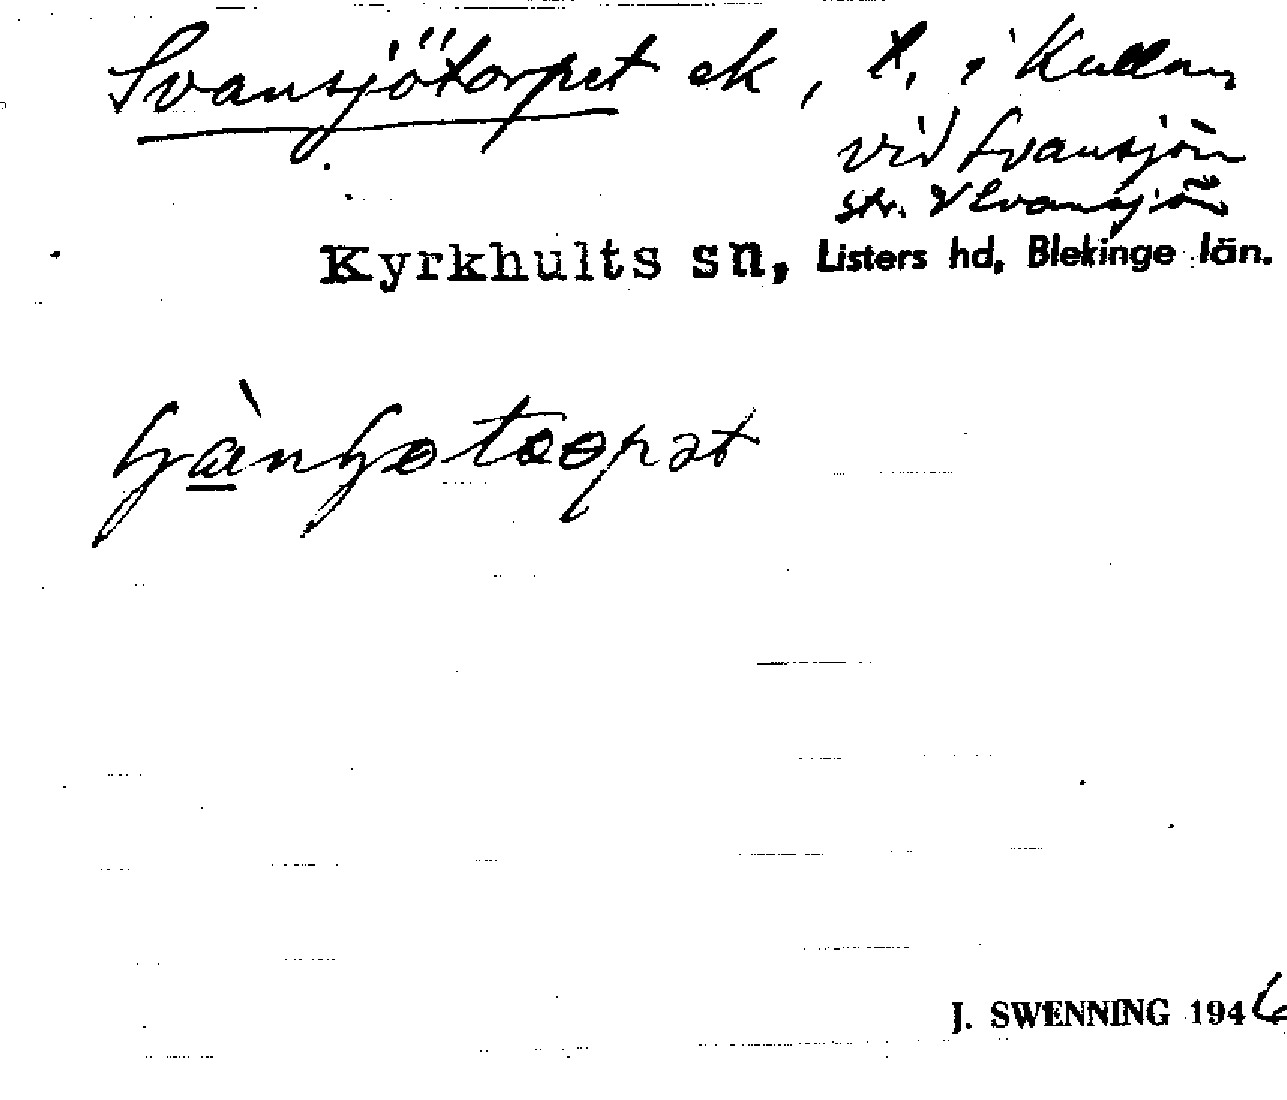 Svansjötorpet ek, t. i Kullan
vid Svansjön
str. V Svansjön
Kyrkhults sn, Listers hd, Blekinge län.
J. SWENNING 1946